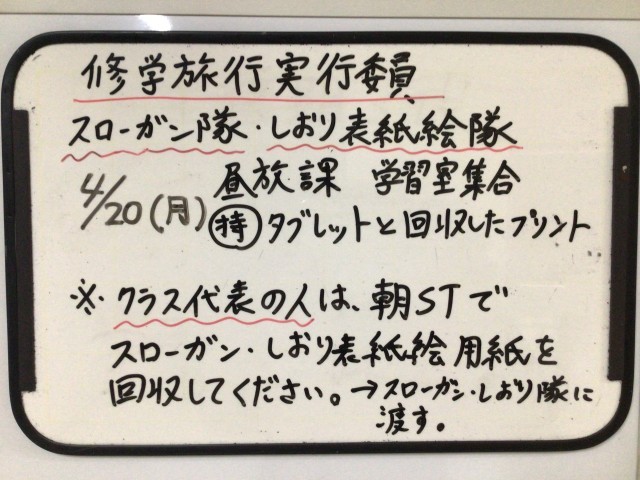 修学旅行実行委員
スローガン隊・しおり表紙絵隊
4/20(月) 昼放課 学習室集合
持 タブレットと回収したプリント
※ クラス代表の人は、朝STで
スローガン・しおり表紙絵用紙を
回収してください。→スローガン・しおり隊に
渡す。